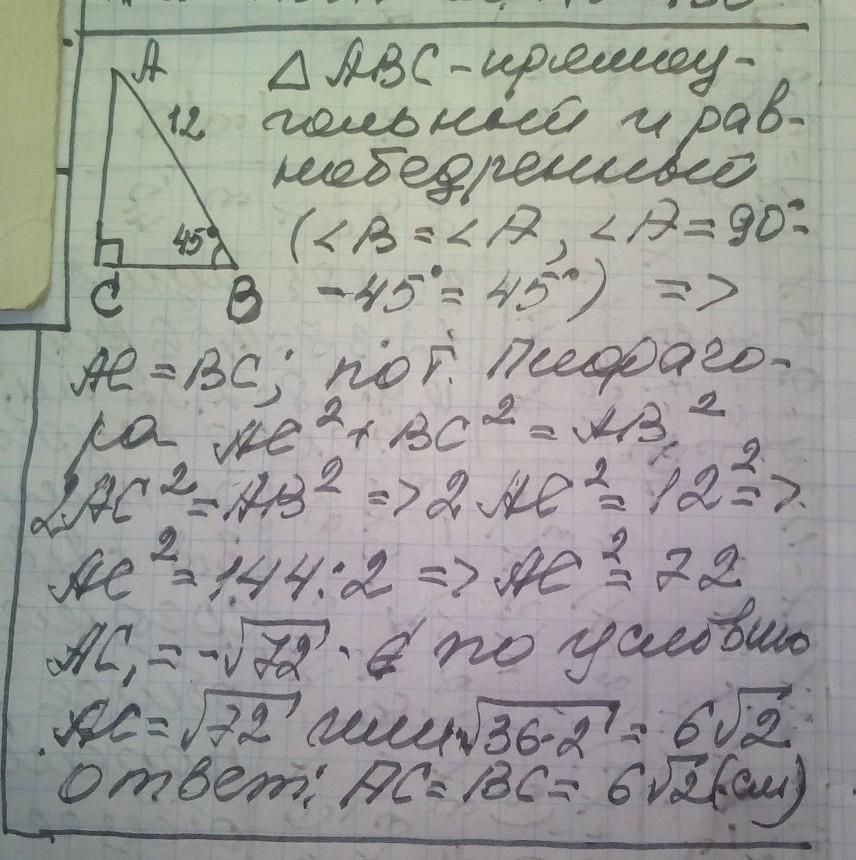 A
12
45°
C B
△ ABC - прямоу-
гольный и рав-
нобедренный
(∠B = ∠A, ∠A = 90°-
- 45° = 45°) =>
AC = BC; по т. Пифаго-
ра AC² + BC² = AB²
2AC² = AB² => 2AC² = 12² =>
AC² = 144:2 => AC² = 72
AC₁ = -√72 - ∉ по условию
AC = √72 или √36·2 = 6√2
Ответ: AC = BC = 6√2 (см)